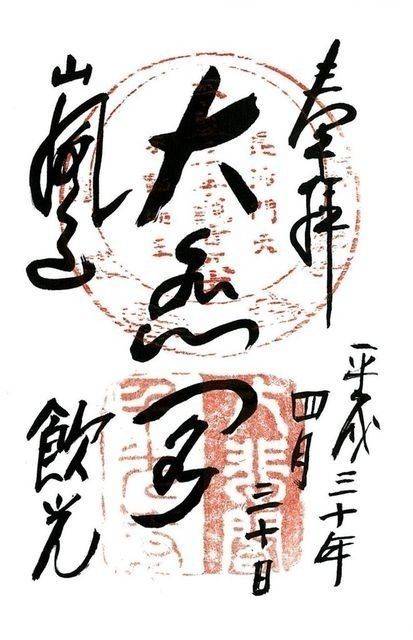 奉拝
平成三十年
四月
三十日
大悲閣
嵐山
飲光